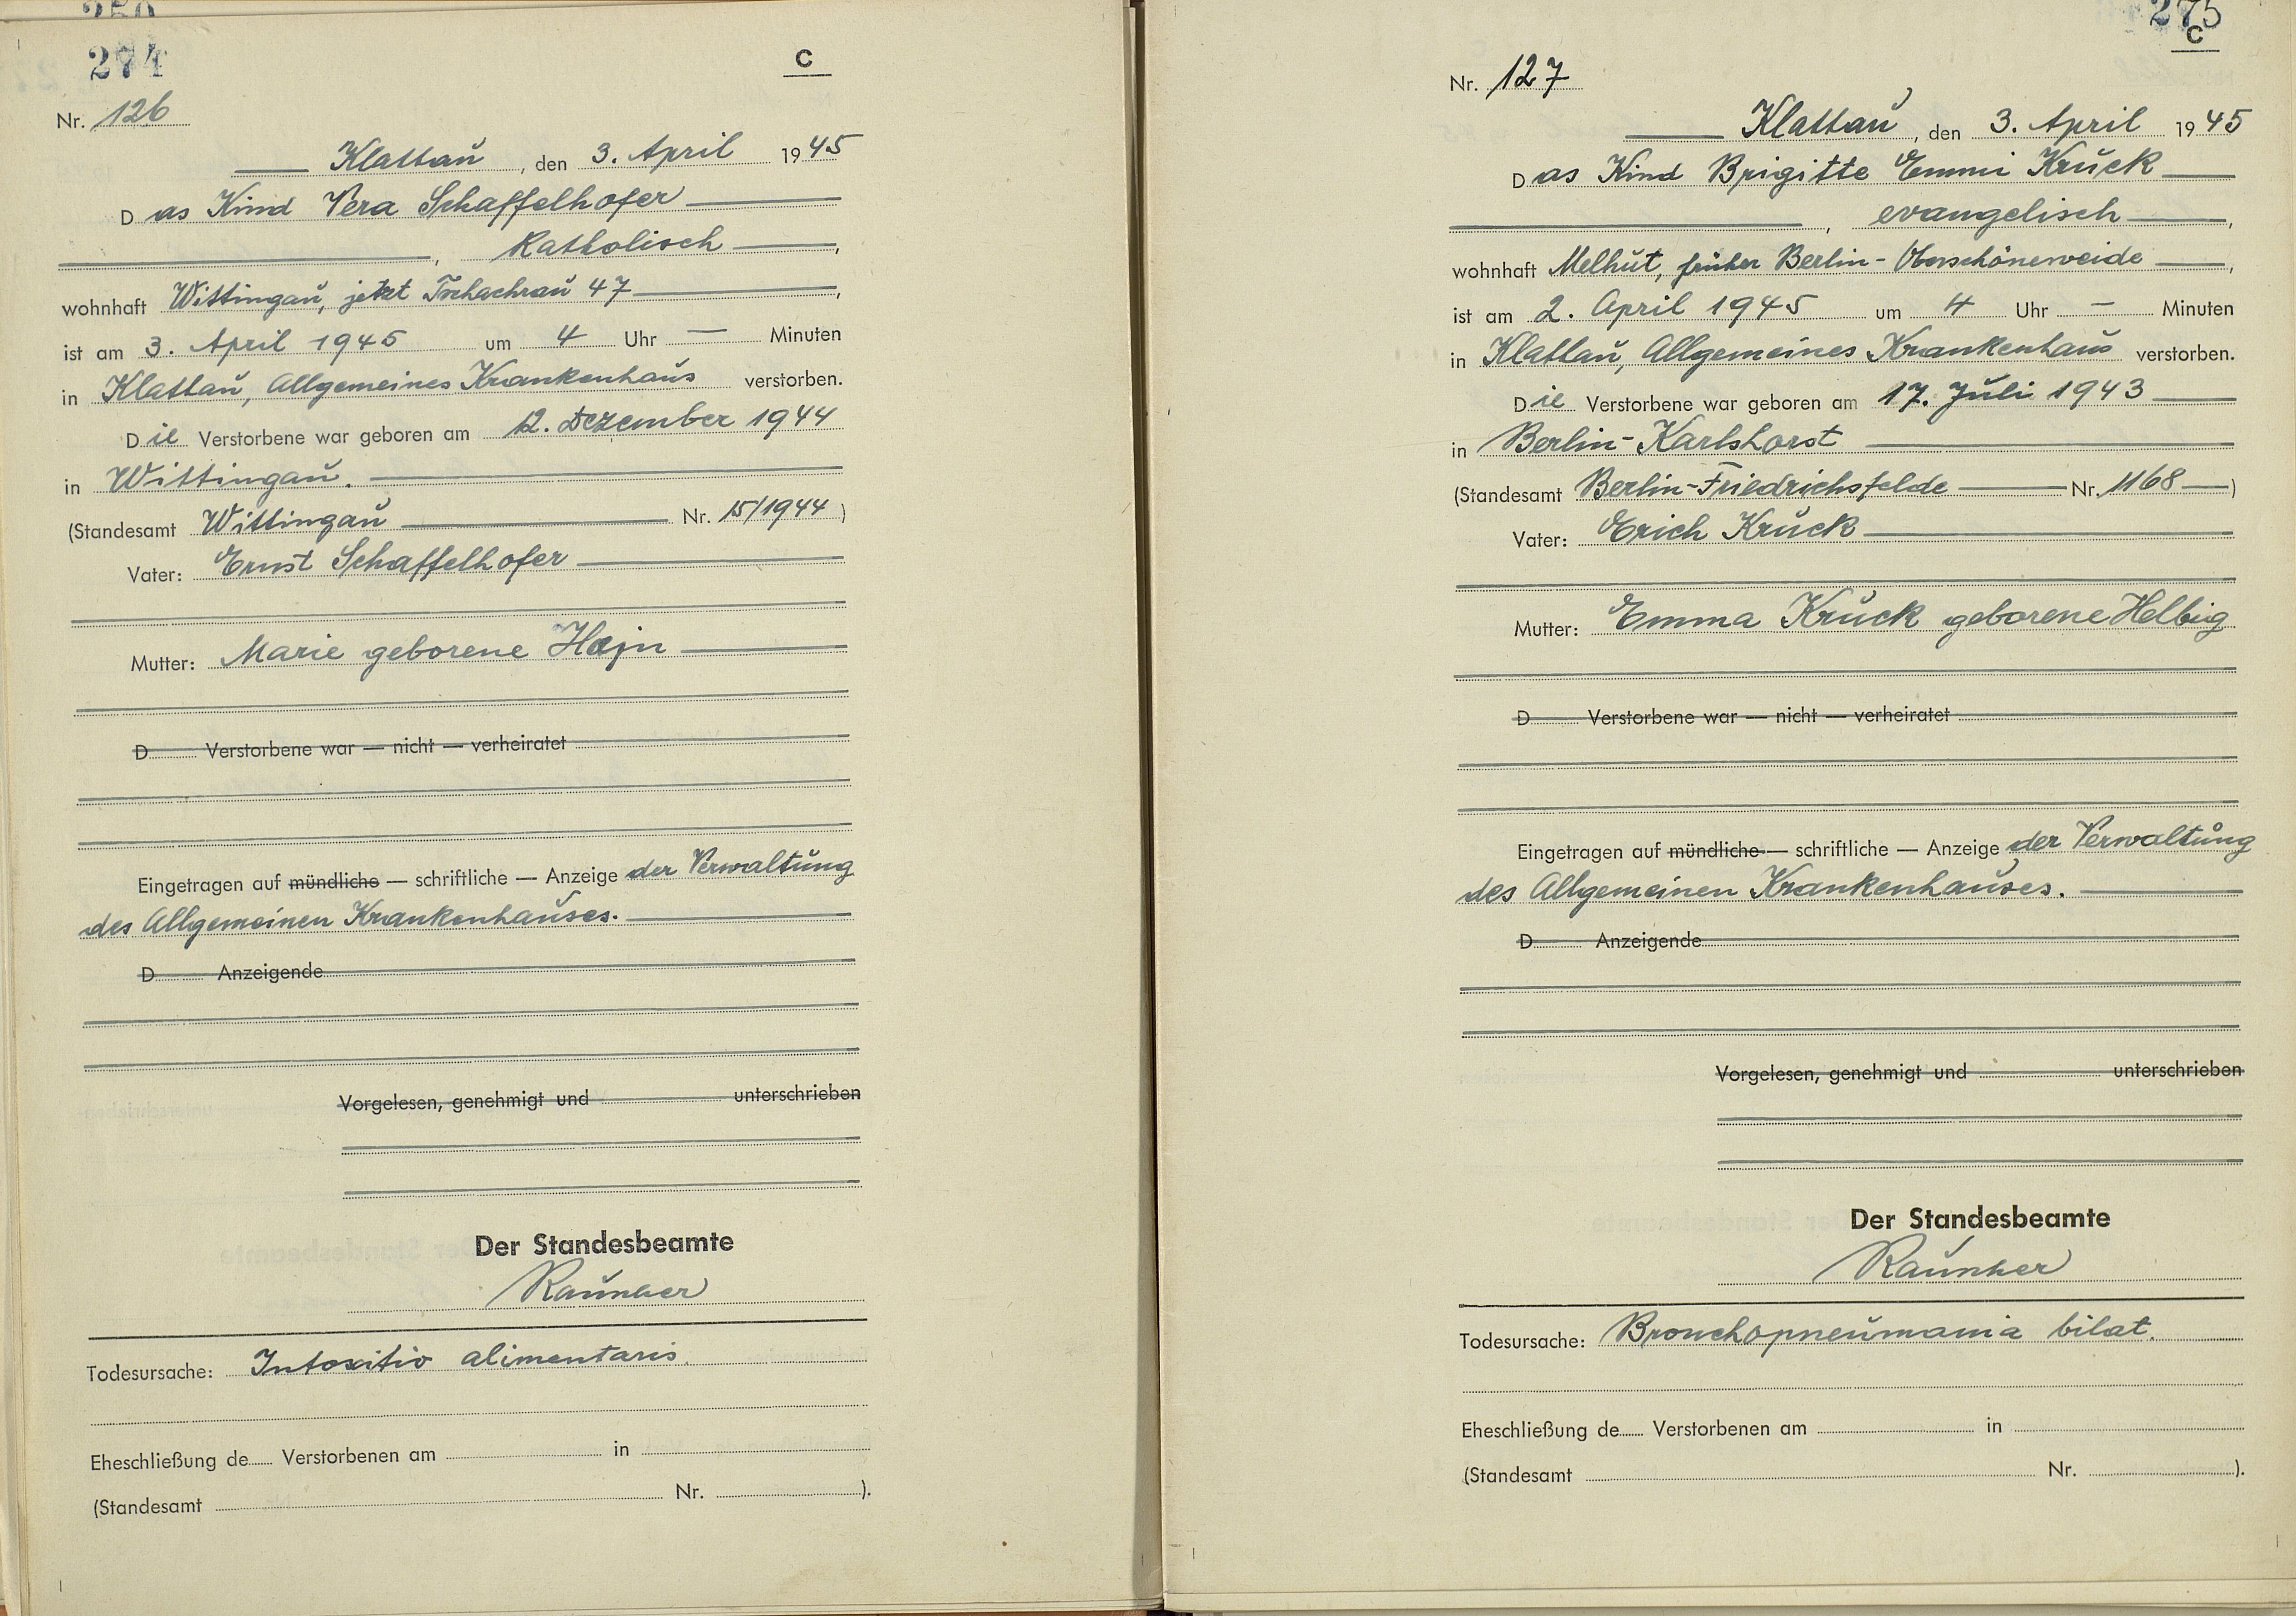 274
C
Nr. 126
Klattau, den 3. April 1945
Das Kind Vera Schaffelhofer
, katholisch,
wohnhaft Wittingau, jetzt Tschachrau 47,
ist am 3. April 1945 um 4 Uhr — Minuten
in Klattau, Allgemeines Krankenhaus verstorben.
Die Verstorbene war geboren am 12. Dezember 1944
in Wittingau.
(Standesamt Wittingau Nr. 15/1944)
Vater: Ernst Schaffelhofer
Mutter: Marie geborene Hajn
D Verstorbene war — nicht — verheiratet
Eingetragen auf mündliche — schriftliche — Anzeige der Verwaltung
des Allgemeinen Krankenhauses.
D Anzeigende
Vorgelesen, genehmigt und unterschrieben
Der Standesbeamte
Todesursache: Intoxitio alimentaris.
Eheschließung de Verstorbenen am in
(Standesamt Nr. ).
275
C
Nr. 127
Klattau, den 3. April 1945
Das Kind Brigitte Emmi Kruck
, evangelisch,
wohnhaft Melhut, früher Berlin-Oberschöneweide,
ist am 2. April 1945 um 4 Uhr — Minuten
in Klattau, Allgemeines Krankenhaus verstorben.
Die Verstorbene war geboren am 17. Juli 1943
in Berlin-Karlshorst
(Standesamt Berlin-Friedrichsfelde Nr. 1168)
Vater: Erich Kruck
Mutter: Emma Kruck geborene Helbig
D Verstorbene war — nicht — verheiratet
Eingetragen auf mündliche — schriftliche — Anzeige der Verwaltung
des Allgemeinen Krankenhauses.
D Anzeigende
Vorgelesen, genehmigt und unterschrieben
Der Standesbeamte
Todesursache: Bronchopneumania bilat.
Eheschließung de Verstorbenen am in
(Standesamt Nr. ).